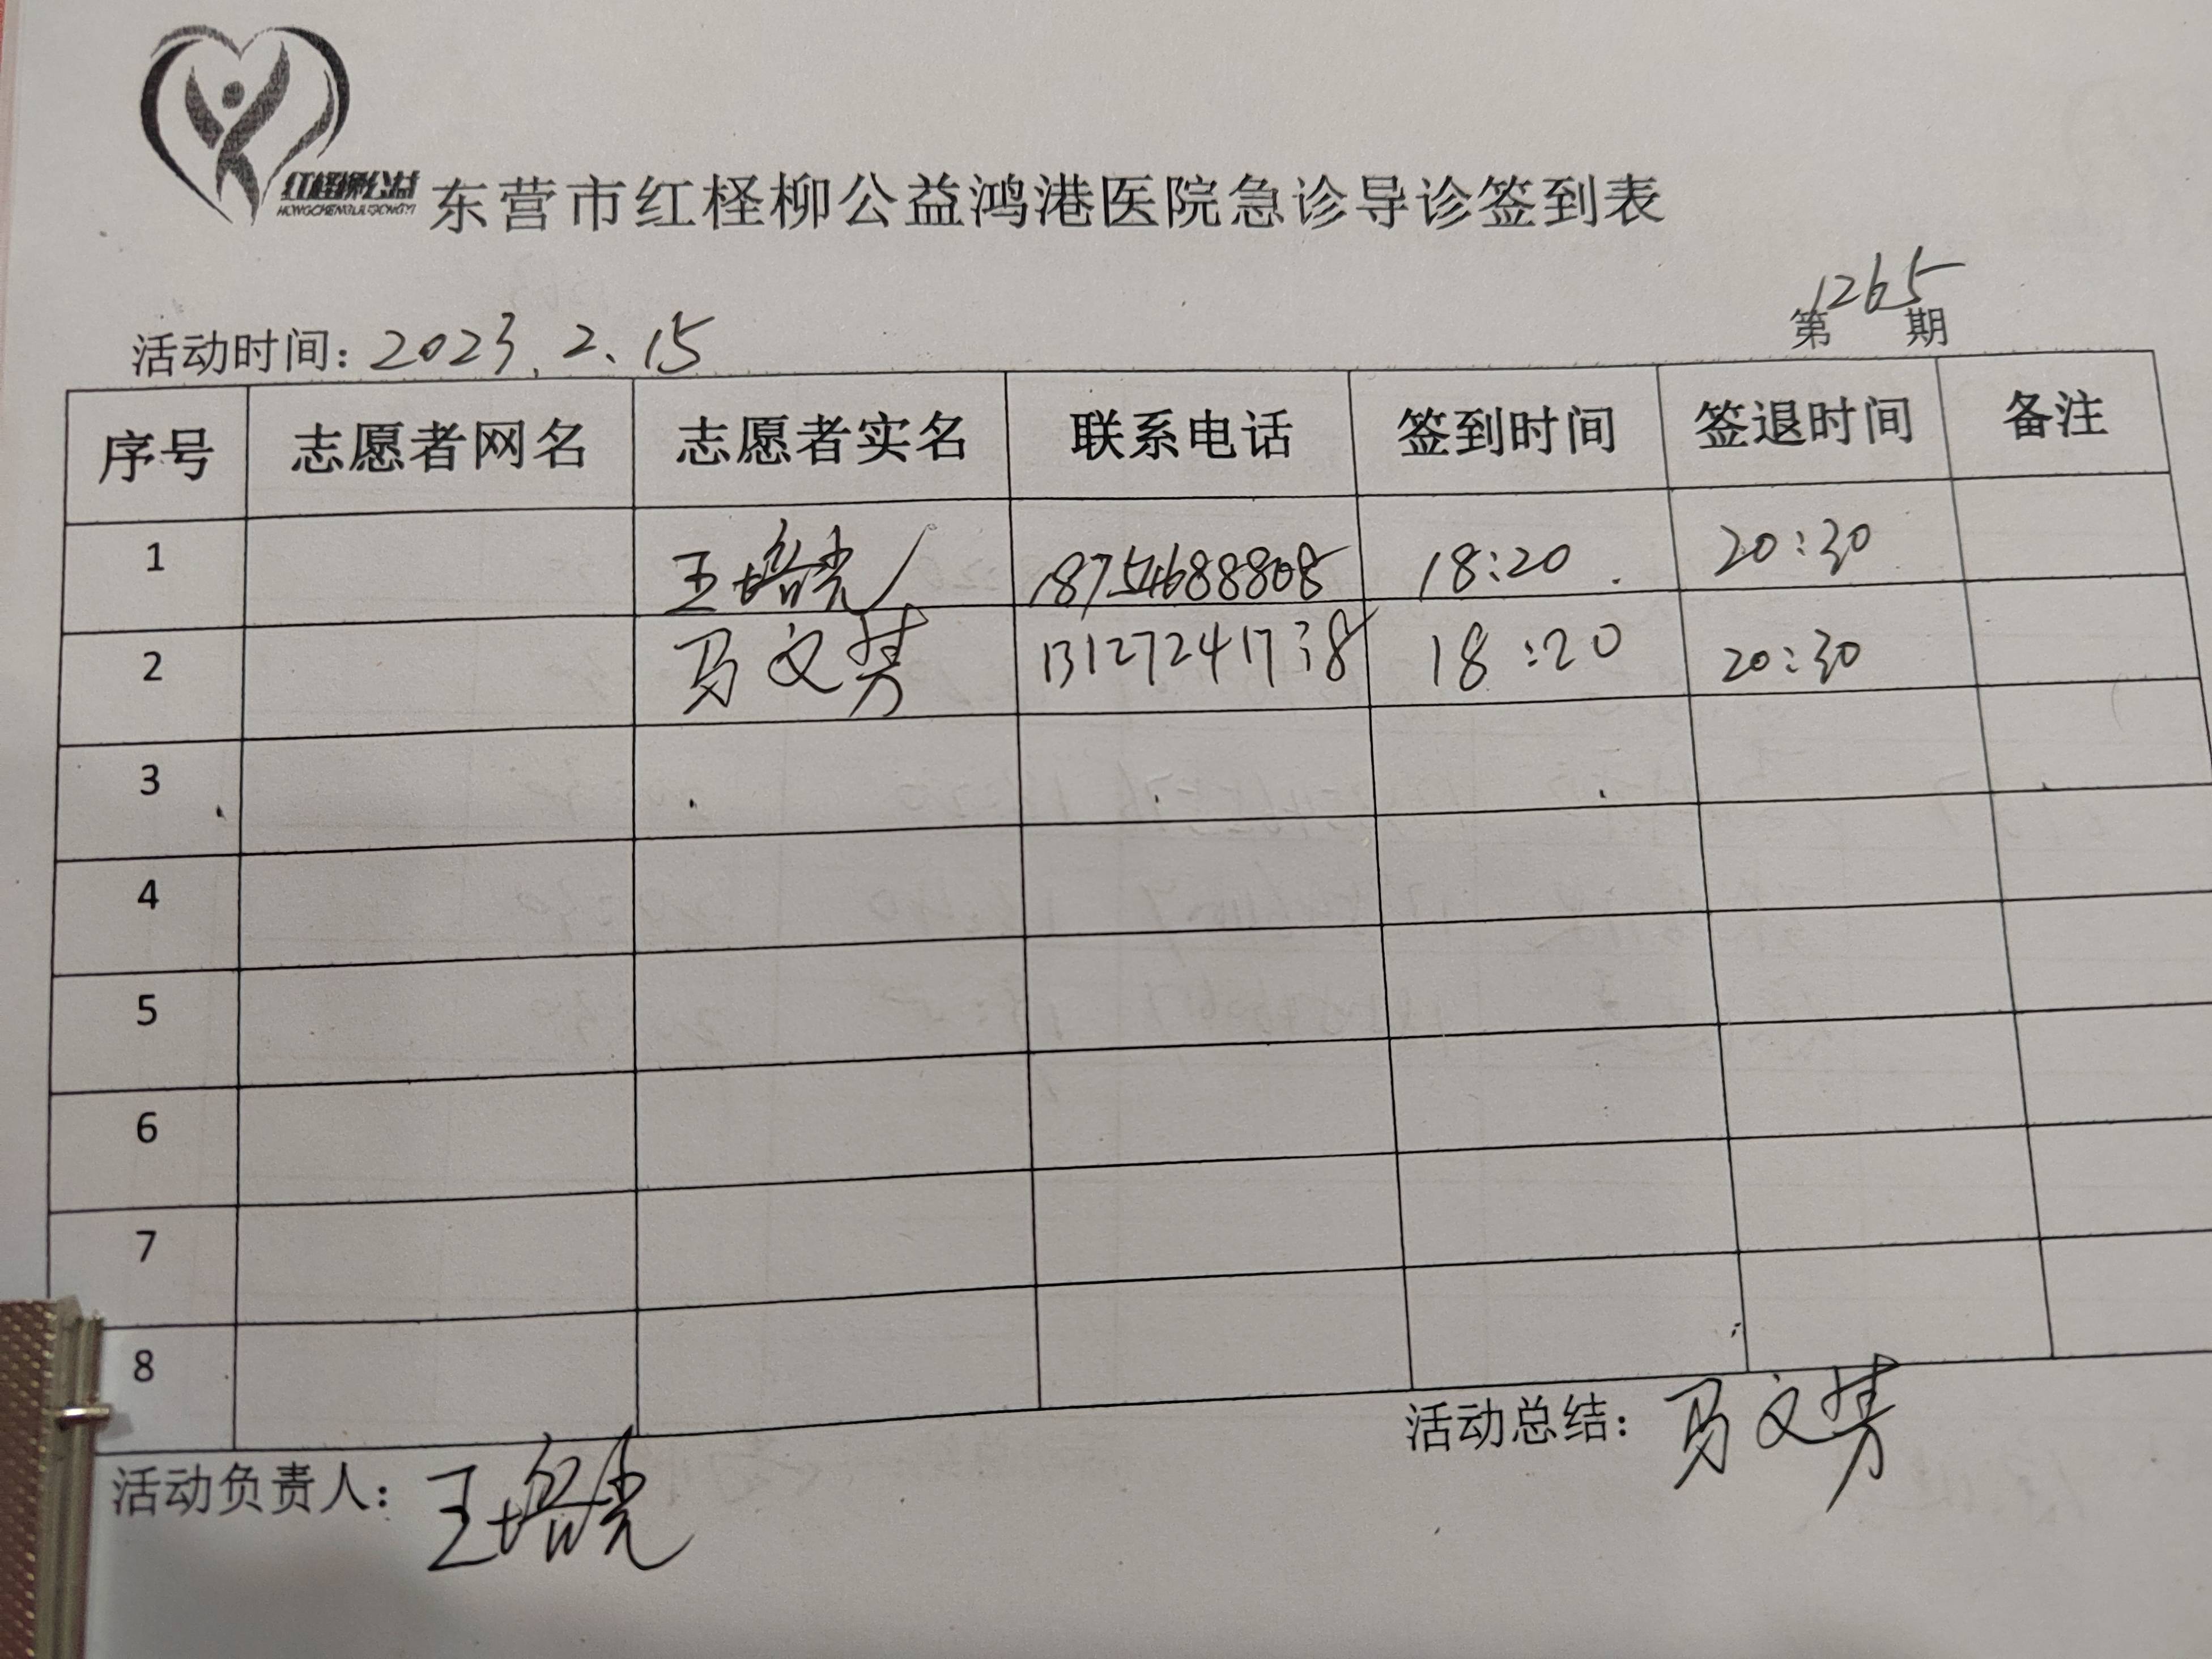 红柽柳公益
HONGCHENGLIUGONGYI
东营市红柽柳公益鸿港医院急诊导诊签到表
活动时间：2023.2.15 第1265期
序号 志愿者网名 志愿者实名 联系电话 签到时间 签退时间 备注
1 王培光 18754688808 18:20 20:30
2 马文芳 13127241738 18:20 20:30
3
4
5
6
7
8
活动总结：马文芳
活动负责人：王培光